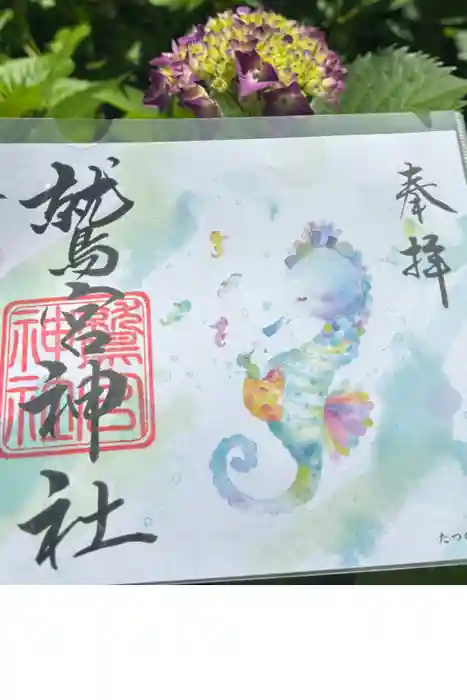 奉拝
鷲宮神社
鷲宮
神社
たつ